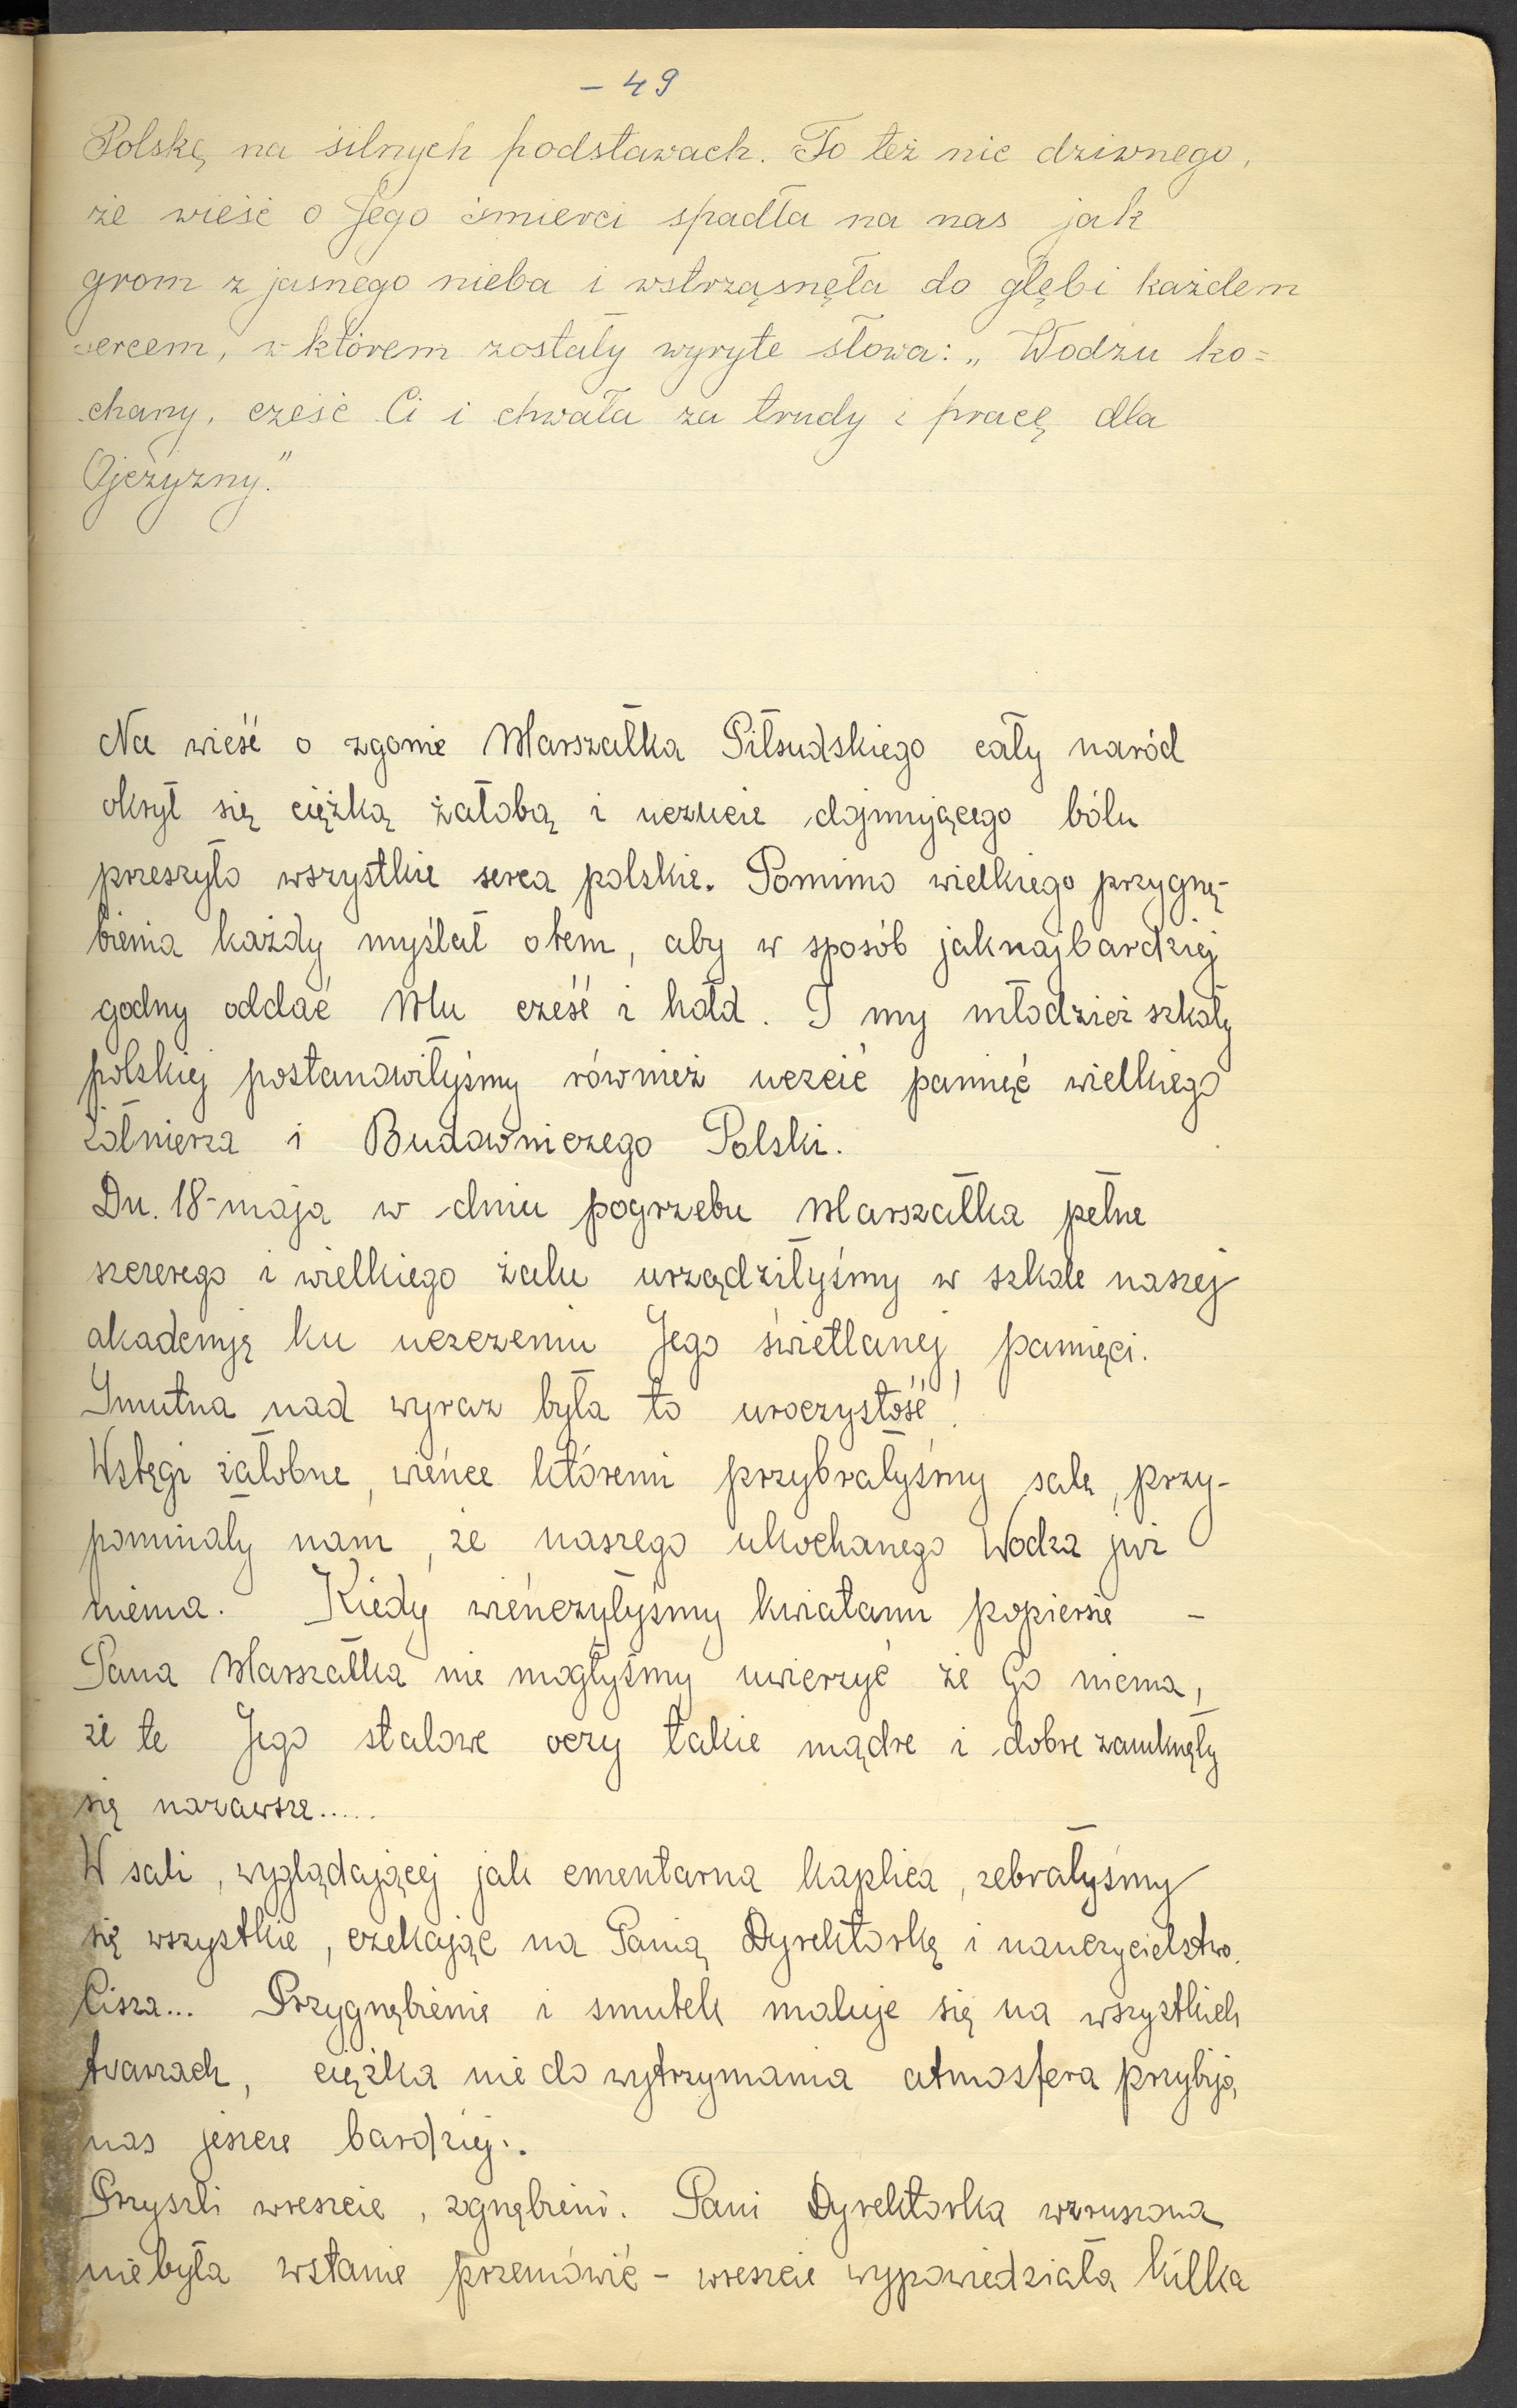 - 49
Polskę na silnych podstawach. To też nic dziwnego,
że wieść o Jego śmierci spadła na nas jak
grom z jasnego nieba i wstrząsnęła do głębi każdem
sercem, w którem zostały wyryte słowa: „Wodzu ko=
chany, cześć Ci i chwała za trudy i pracę dla
Ojczyzny."
Na wieść o zgonie Marszałka Piłsudskiego cały naród
okrył się ciężką żałobą i uczucie dojmującego bólu
przeszyło wszystkie serca polskie. Pomimo wielkiego przygnę-
bienia każdy myślał otem, aby w sposób jaknajbardziej
godny oddać Mu cześć i hołd. I my młodzież szkoły
polskiej postanowiłyśmy również uczcić pamięć wielkiego
żołnierza i Budowniczego Polski.
Dn. 18-maja w dniu pogrzebu Marszałka pełne
szczerego i wielkiego żalu urządziłyśmy w szkole naszej
akademję ku uczczeniu Jego świetlanej pamięci.
Smutna nad wyraz była to uroczystość!
Wstęgi żałobne, wieńce któremi przybrałyśmy salę, przy-
pominały nam, że naszego ukochanego Wodza już
niema. Kiedy wieńczyłyśmy kwiatami popiersie -
Pana Marszałka nie mogłyśmy uwierzyć że Go niema,
że te Jego stalowe oczy takie mądre i dobre zamknęły
się nazawsze.....
W sali, wyglądającej jak cmentarna kaplica, zebrałyśmy
się wszystkie, czekając na Panią Dyrektorkę i nauczycielstwo.
Cisza... Przygnębienie i smutek maluje się na wszystkich
twarzach, ciężka nie do wytrzymania atmosfera przybija
nas jeszcze bardziej..
Przyszli wreszcie, zgnębieni. Pani Dyrektorka wzruszona
niebyła wstanie przemówić - wreszcie wypowiedziała kilka